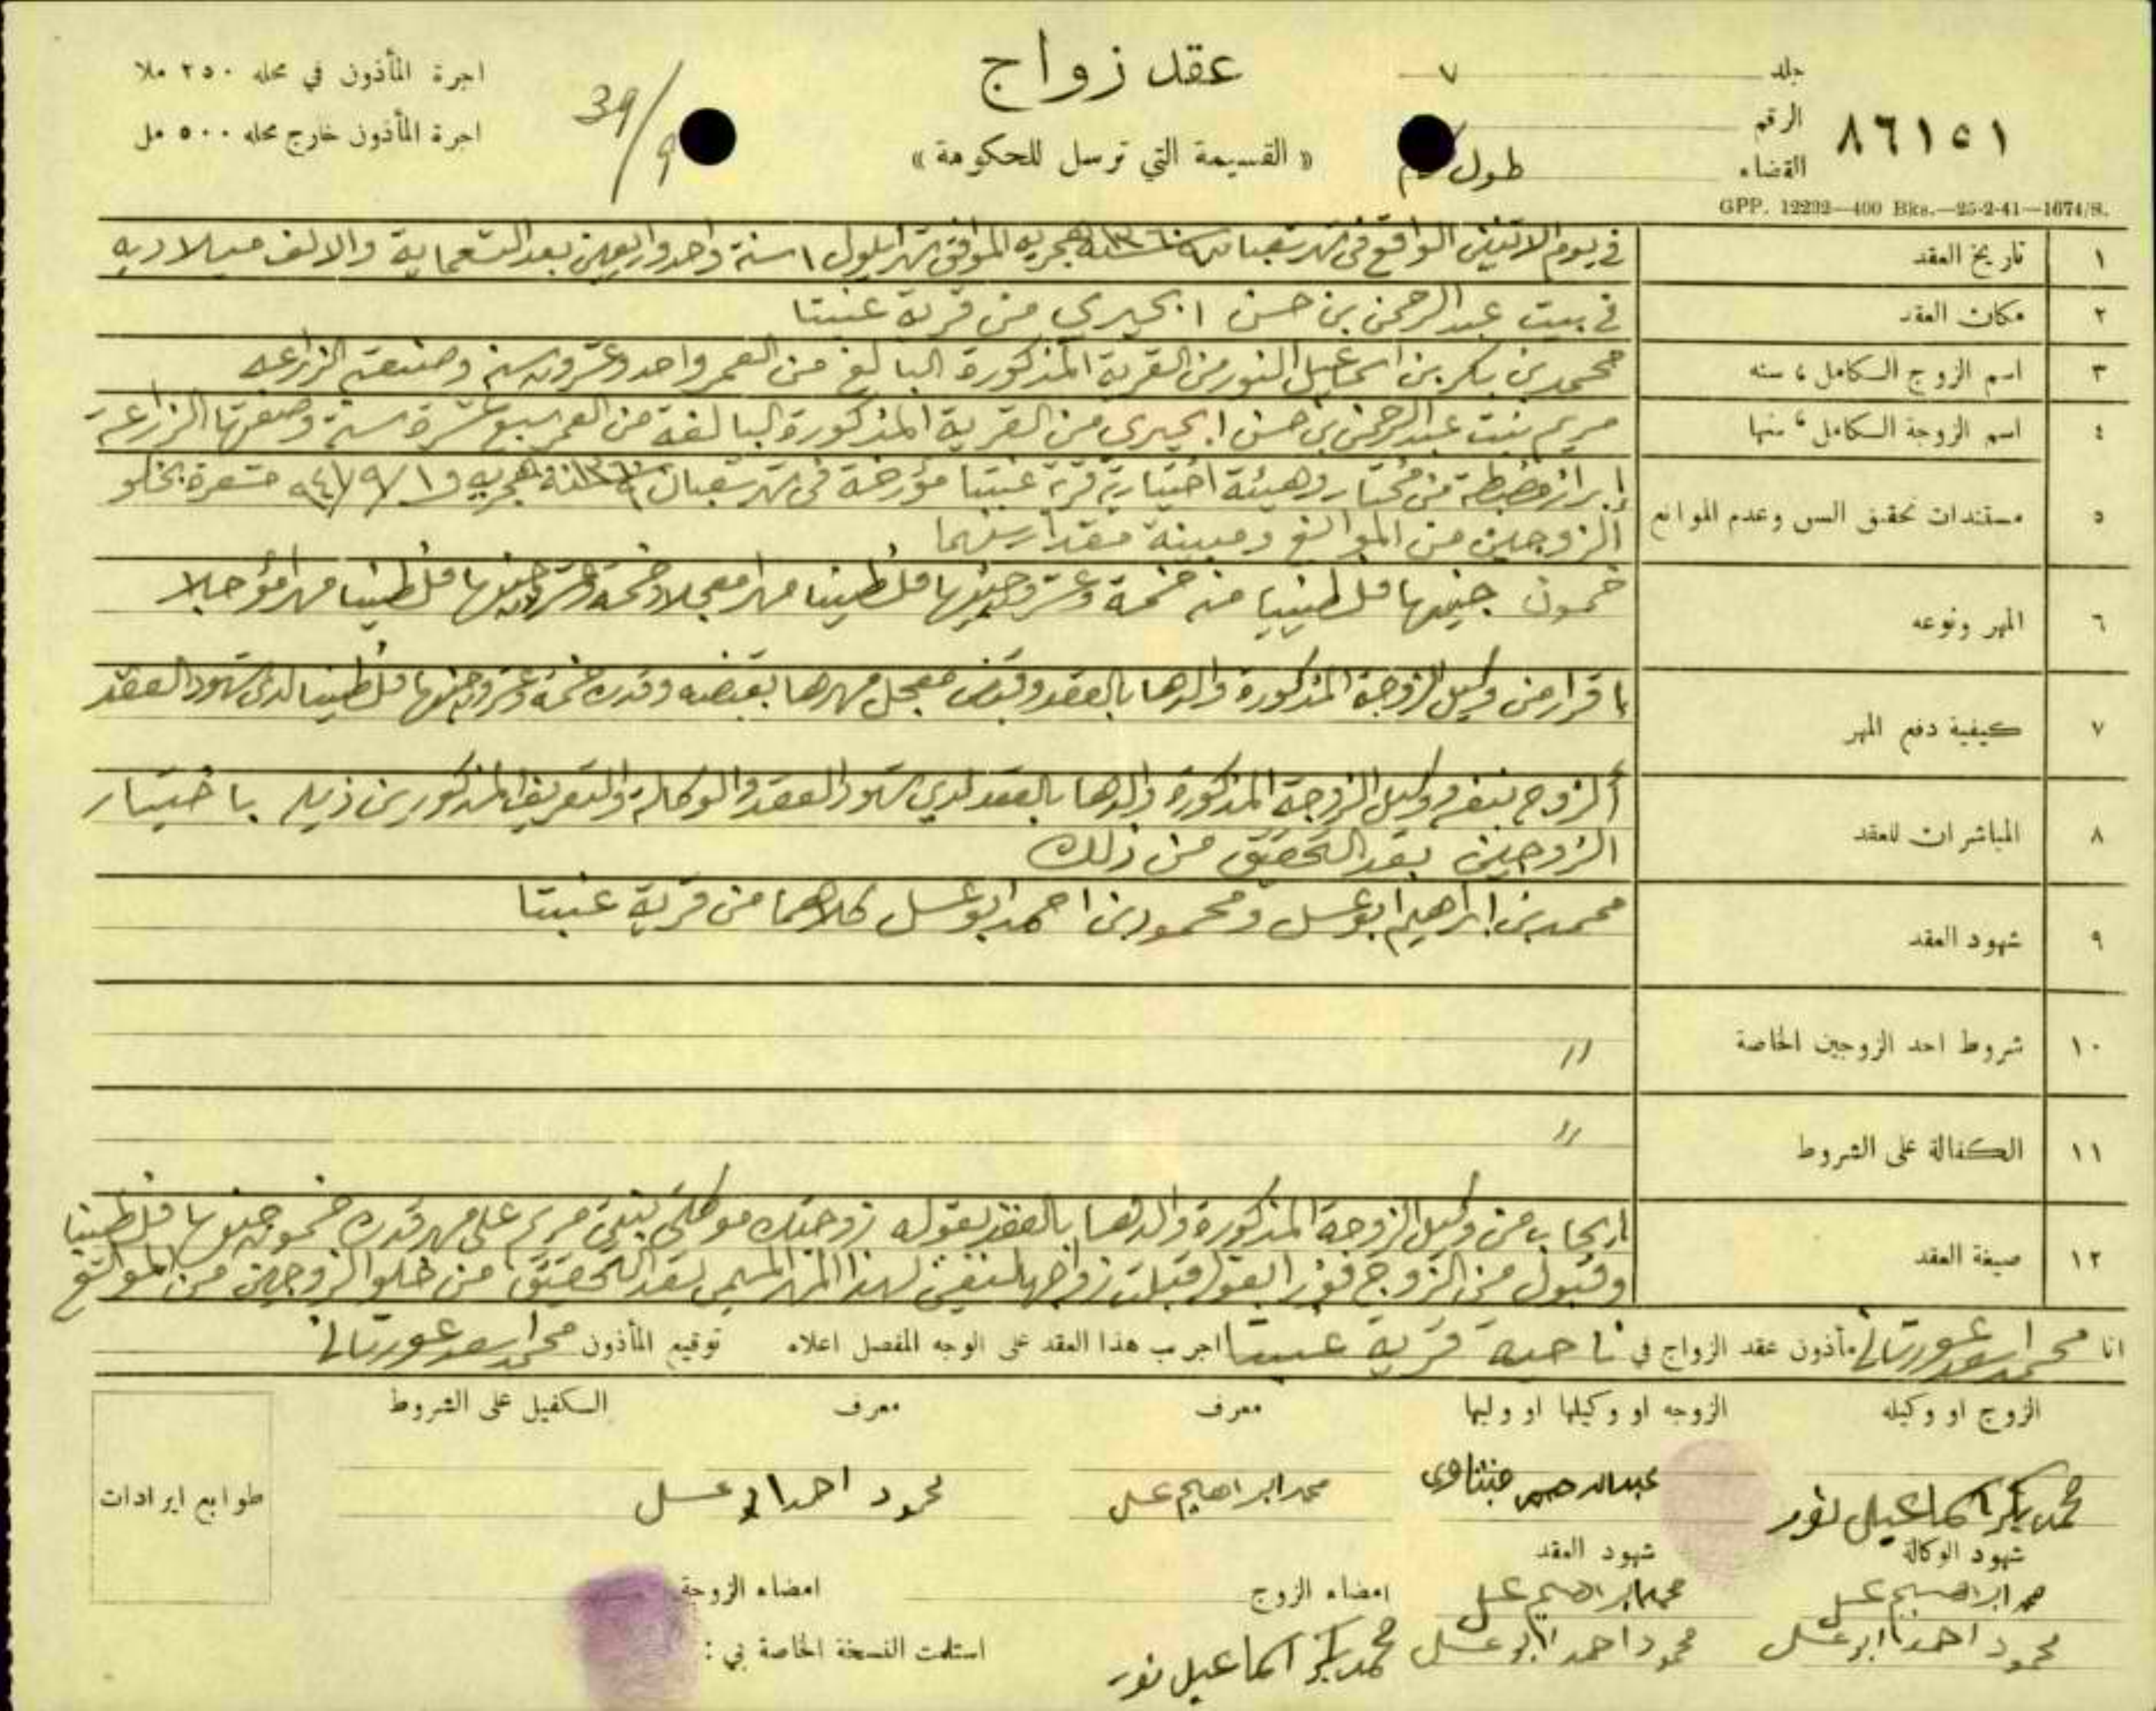 جلد ٧
الرقم
٨٦١٥١
القضاء طول
GPP. 12292—400 Bks.—25-2-41—1674/S.
عقد زواج
« القسيمة التي ترسل للحكومة »
39/9
اجرة المأذون في محله ٢٥٠ ملا
اجرة المأذون خارج محله ٥٠٠ مل
١ تاريخ العقد في يوم الاثنين الواقع في شهر شعبان سنة ١٣٦٠ هجريه الموافق شهر ايلول ١ سنة واحد واربعين بعد التسعماية والالف ميلاديه
٢ مكان العقد في بيت عبد الرحمن بن حسن من قرية عنبتا
٣ اسم الزوج الكامل ، سنه محمد بن بكر بن اسماعيل النور من القرية المذكورة البالغ من العمر واحد وعشرون سنة وصنعته الزراعه
٤ اسم الزوجة الكامل ، سنها مريم بنت عبد الرحمن بن حسن من القرية المذكورة البالغة من العمر سبع عشرة سنة وصنعتها الزراعة
٥ مستندات تحقق السن وعدم الموانع ابراز مضبطة من مختار وهيئة اختيارية قرية عنبتا مؤرخة في شهر شعبان سنة ١٣٦٠ هجريه و ١/٩/٩٤١ مشعرة بخلو
الزوجين من الموانع ومبينة مقدار سنهما
٦ المهر ونوعه خمسون جنيها فلسطينيا منه خمسة وعشرون جنيها فلسطينيا مهرا معجلا وخمسة وعشرون جنيها فلسطينيا مهرا مؤجلا
٧ كيفية دفع المهر باقرار من وكيل الزوجة المذكورة والدها بالعقد وقبض معجل مهرها بقبضه وقدره خمسة وعشرون جنيها فلسطينيا لدى شهود العقد
٨ المباشران للعقد الزوج بنفسه ووكيل الزوجة المذكورة والدها بالعقد لدي شهود العقد والوكالة والتعريف المذكورين ذيله باختيار
الزوجين بعد التحقق من ذلك
٩ شهود العقد محمد بن ابراهيم ابو عسل ومحمود بن احمد ابو عسل كلاهما من قرية عنبتا
١٠ شروط احد الزوجين الخاصة //
١١ الكفالة على الشروط //
١٢ صيغة العقد ايجاب من وكيل الزوجة المذكورة والدها بالعقد بقوله زوجتك موكلتي بنتي مريم على مهر قدره خمسون جنيها فلسطينيا
وقبول من الزوج فورا بقوله قبلت زواجها لنفسي بهذا المهر المسمى بعد التحقق من خلو الزوجين من الموانع
انا محمد مأذون عقد الزواج في ناحية قرية عنبتا اجريت هذا العقد على الوجه المفصل اعلاه توقيع المأذون محمد
الزوج او وكيله الزوجه او وكيلها او وليها معرف معرف الكفيل على الشروط
محمد بكر اسماعيل نور عبدالرحمن محمد ابراهيم عسل محمود احمد ابو عسل
طوابع ايرادات
شهود الوكالة شهود العقد
محمد ابراهيم عسل محمد ابراهيم عسل امضاء الزوج امضاء الزوجة
محمود احمد ابو عسل محمود احمد ابو عسل محمد بكر اسماعيل نور استلمت النسخة الخاصة بي :